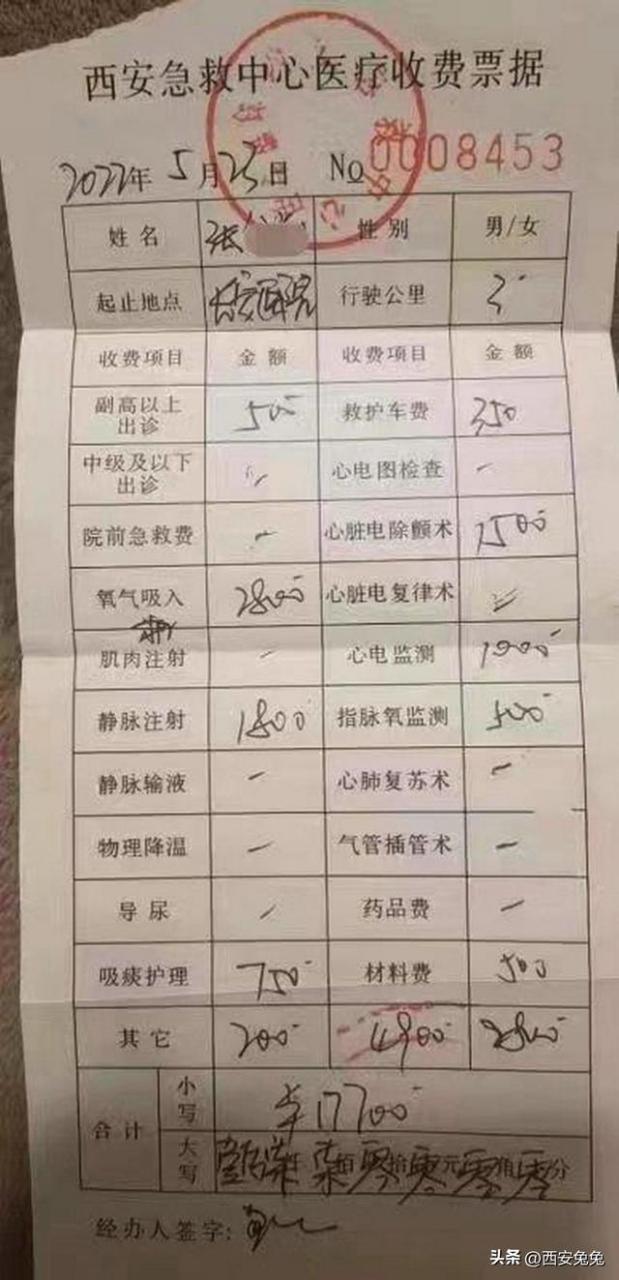 西安急救中心医疗收费票据
2022年 5月 23日 No 0008453
姓名 张 性别 男/女
起止地点 长安医院 行驶公里
收费项目 金额 收费项目 金额
副高以上出诊 50 救护车费 350
中级及以下出诊 - 心电图检查 -
院前急救费 - 心脏电除颤术 1500
氧气吸入 2800 心脏电复律术
肌肉注射 - 心电监测 1000
静脉注射 1800 指脉氧监测 500
静脉输液 - 心肺复苏术 -
物理降温 - 气管插管术 -
导尿 - 药品费 -
吸痰护理 750 材料费 500
其它 200 4900
合计 小写 ¥17700
大写 壹万柒仟柒佰零拾零元零角零分
经办人签字:
头条 @西安兔兔